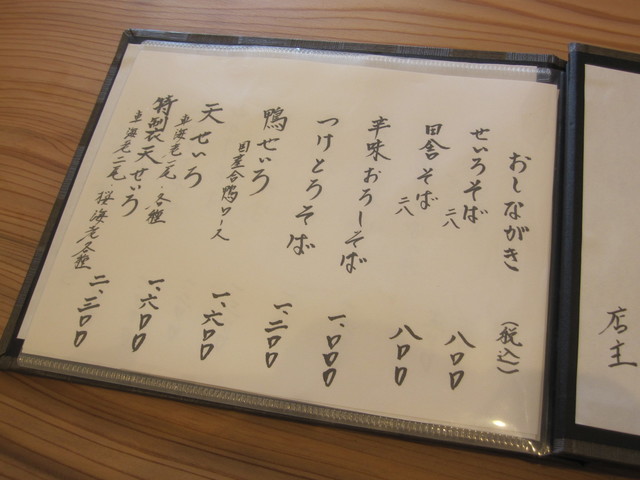 おしながき (税込)
せいろそば 二八 八〇〇
田舎そば 二八 八〇〇
辛味おろしそば 一、〇〇〇
つけとろそば 一、二〇〇
鴨せいろ 一、六〇〇
国産合鴨ロース
天せいろ 一、六〇〇
車海老一尾・各種
特製天せいろ 二、三〇〇
車海老二尾・桜海老各種
店主